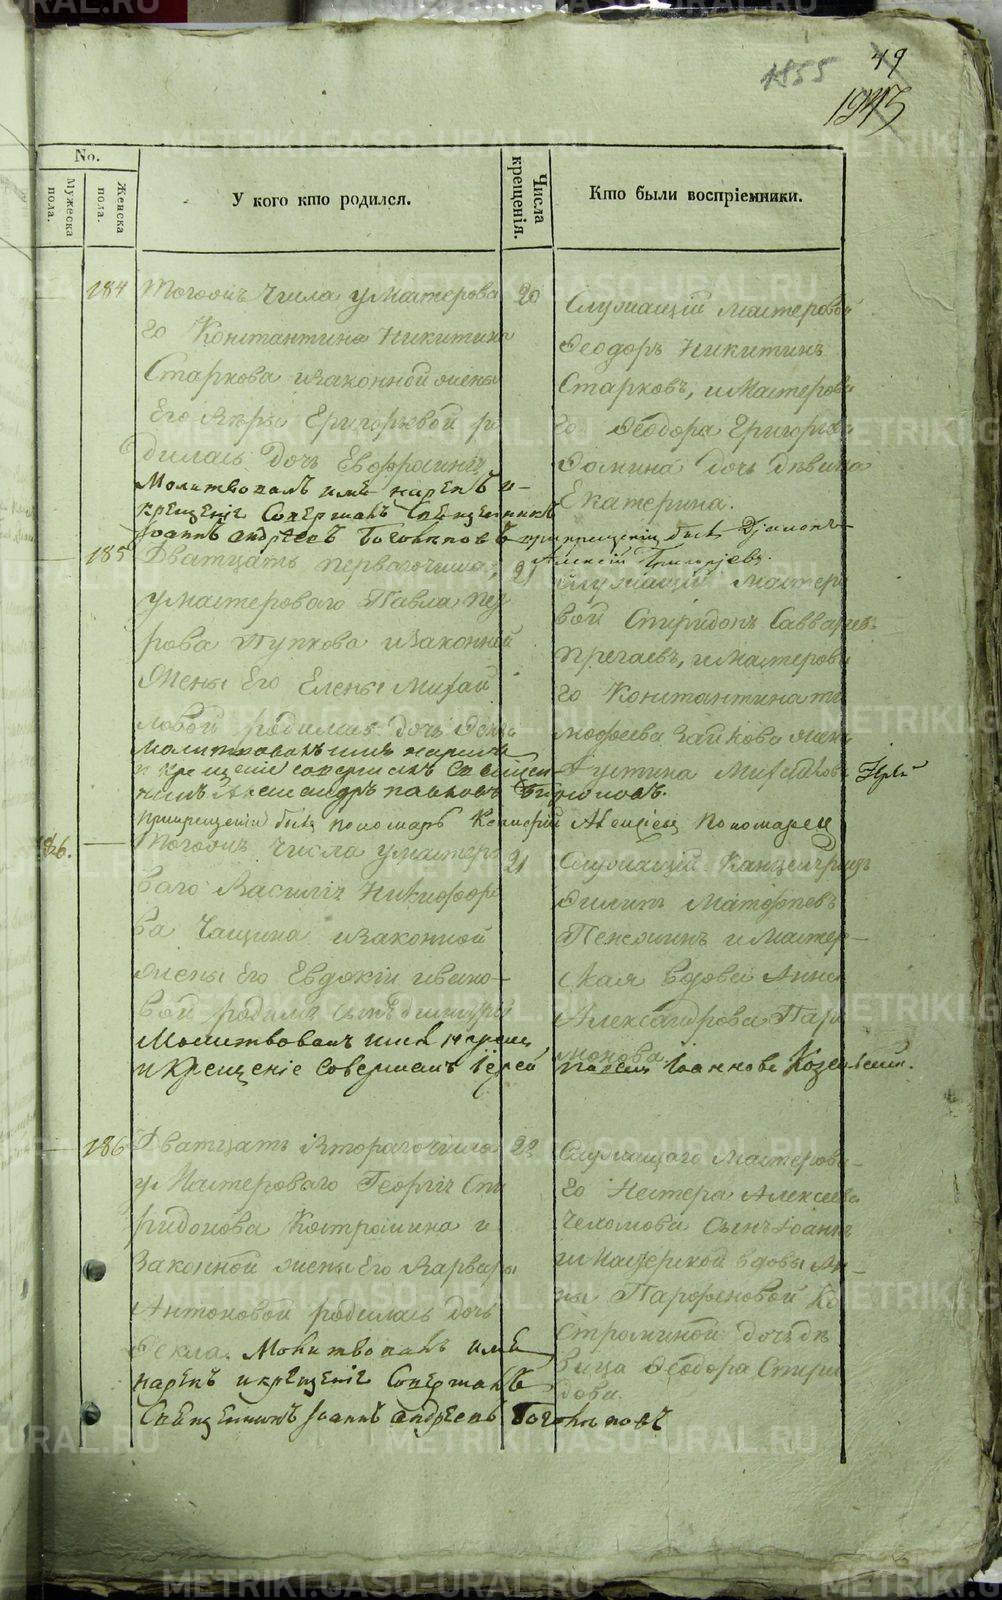 1855
49
No.
Мужеска пола.
Женска пола.
У кого кто родился.
Числа крещенія.
Кто были воспріемники.
184
Тогожъ Числа у Мастерова
го Константина Никитина
Старкова и законной жены
Его Вѣры Григорьевой ро
дилась дочь Евфросинія
Молитвовалъ имя нарекъ и
крещеніе Совершалъ Священникъ
Іоаннъ Андреевъ Боголѣповъ
при крещеніи былъ Діаконъ
Алексій Григорьевъ.
20
Служащій мастеровой
Ѳеодоръ Никитинъ
Старковъ, и Мастерова
го Ѳеодора Григорьева
Ѳомина дочь дѣвица
Екатерина.
185
Дватцать перваго числа,
у мастероваго Павла Пет
рова Тупкова и законной
Жены Его Елены Михай
ловой родилась дочь
молитвовалъ имя нарекъ
и крещеніе совершалъ Священ
никъ Александръ Павловъ Бирюковъ.
При крещеніи былъ пономарь Алексіей Пономарев
21
Служащій Мастеро
вой Спиридонъ Савватіев
и Мастерова
го Константина Ти
мофеева Зайкова жена
Устина Михайлова
186.
Тогожъ Числа у мастеро
ваго Василія Никифоро
ва Чащина и законной
жены Его Евдокіи Ивано-
вой родился сынъ Димитрій
Молитвовалъ имя нарекъ
и Крещеніе Совершалъ Іерей Павелъ Іоанновъ
21
Служащій Канцеляристъ
Филипъ Матфѣевъ
и Мастер-
ская вдова Анна
Александрова Пара
монова.
186
Дватцать Втораго числа
у Мастероваго Георгія Спи
ридонова Костромина и
Законной жены Его Варвары
Антоновой родилась дочь
Ѳекла. Молитвовалъ имя
нарекъ и крещеніе Совершалъ
Священникъ Іоаннъ Андреевъ Боголѣповъ
22
Служащаго Мастерова-
го Нестера Алексеева
Чехомова Сынъ Іоаннъ
и Мастерской вдовы Ан-
ны Парфеновой Ко
строминой дочь дѣ
вица Ѳеодора Спири
дова.
METRIKI.GASO-URAL.RU